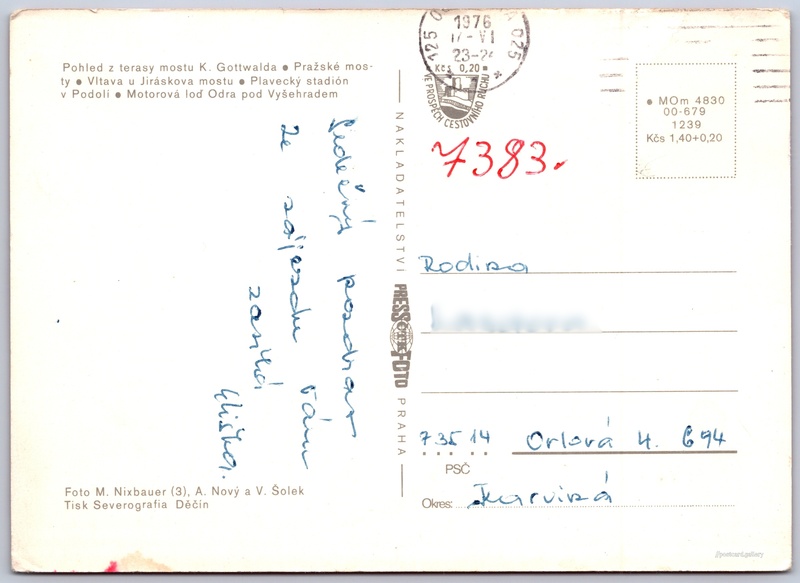 Pohled z terasy mostu K. Gottwalda ● Pražské mos-
ty ● Vltava u Jiráskova mostu ● Plavecký stadión
v Podolí ● Motorová loď Odra pod Vyšehradem
Srdečný pozdrav
ze zájezdu vám
zasílá
Eliška.
Foto M. Nixbauer (3), A. Nový a V. Šolek
Tisk Severografia Děčín
NAKLADATELSTVÍ
PRESSFOTO
PRAHA
1976
17.-VI
23-24
025
Kčs 0,20
VE PROSPĚCH CESTOVNÍHO RUCHU
7383.
● MOm 4830
00-679
1239
Kčs 1,40+0,20
Rodina
735 14 Orlová 4. 694
PSČ
Okres: Karviná